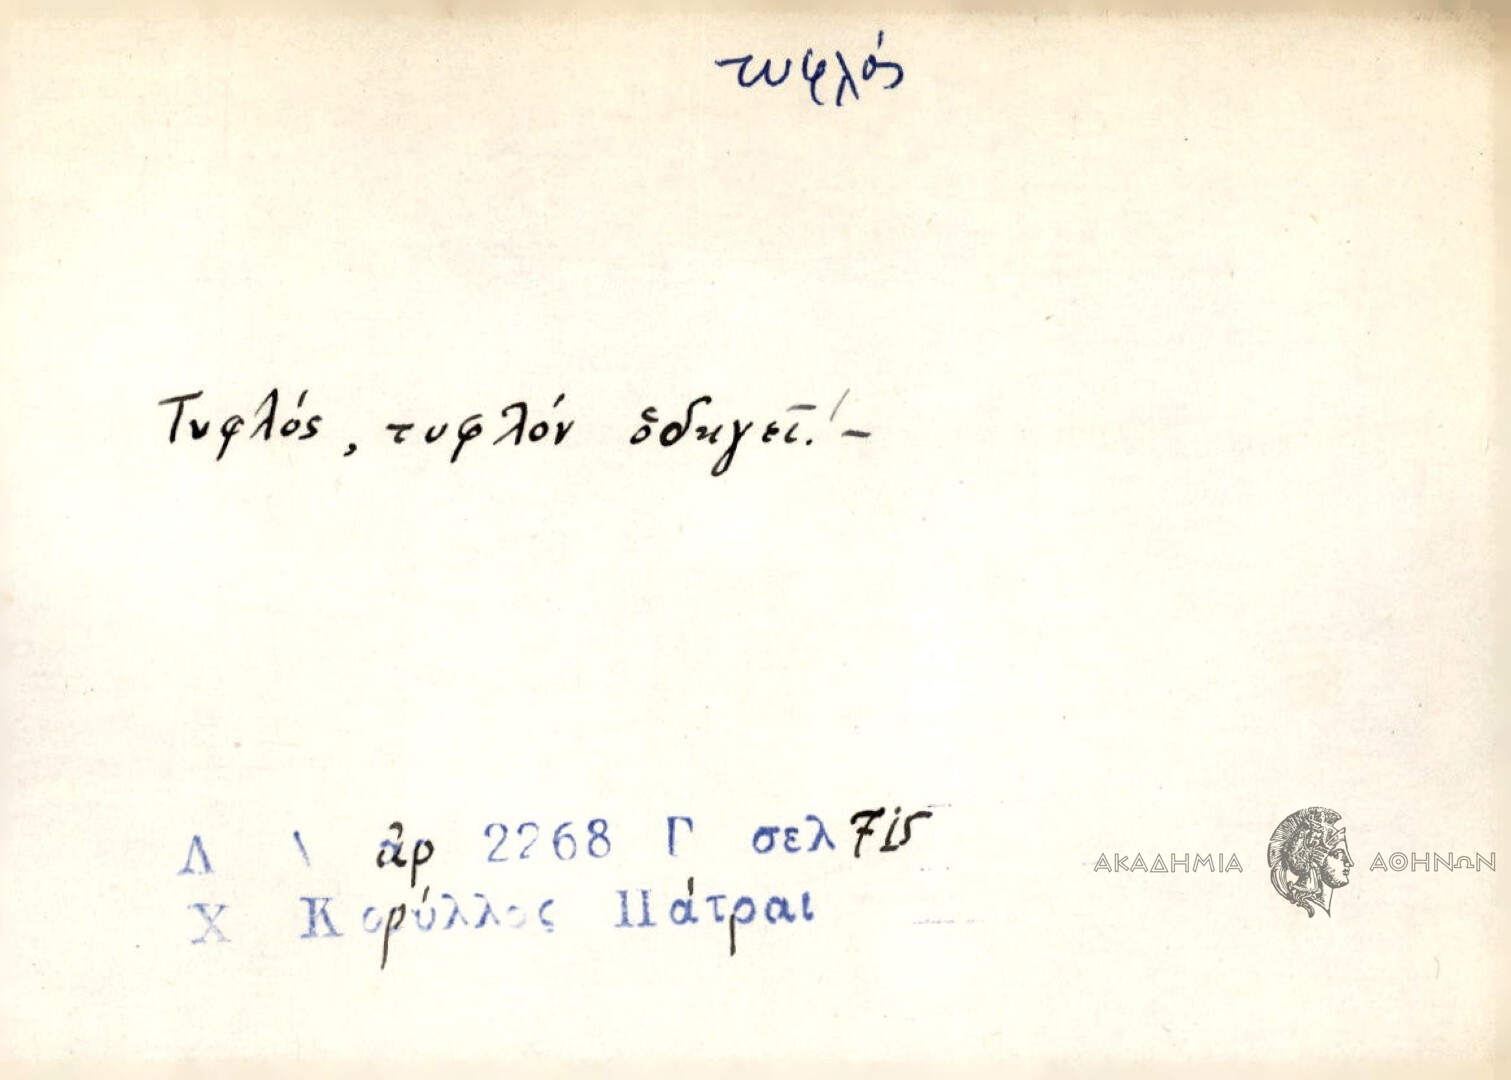 τυφλός
Τυφλός, τυφλόν ὁδηγεῖ.! –
Λ Α ἀρ 2268 Γ σελ 715
Χ Κορύλλος Πάτραι
ΑΚΑΔΗΜΙΑ ΑΘΗΝΩΝ